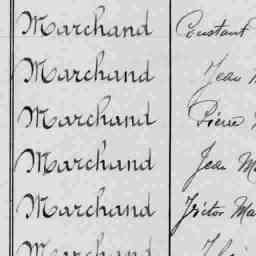 Marchand Constant
Marchand Jean
Marchand Pierre
Marchand Jean
Marchand Victor
Marchand